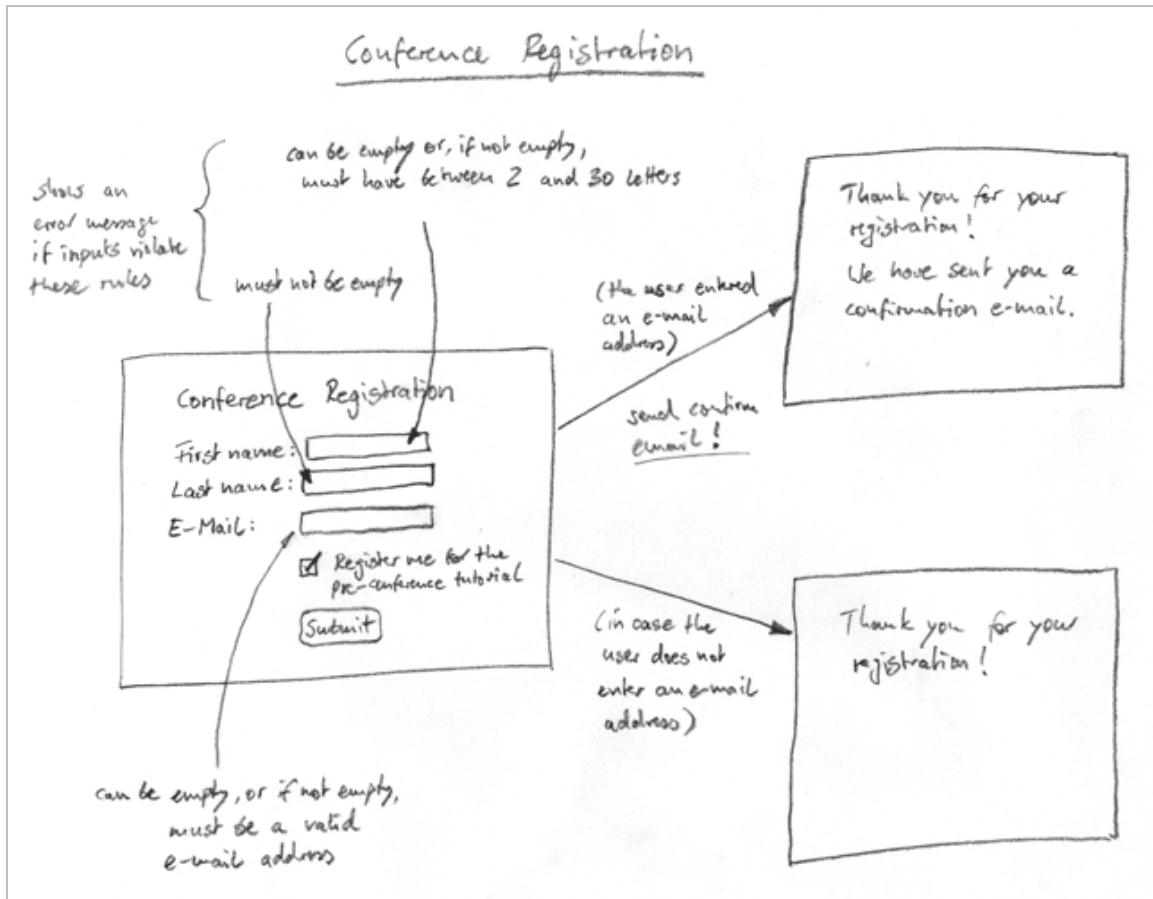 Conference Registration
can be empty or, if not empty,
must have between 2 and 30 letters
shows an
error message
if inputs violate
these rules
must not be empty
Conference Registration
First name:
Last name:
E-Mail:
Register me for the
pre-conference tutorial
Submit
can be empty, or if not empty,
must be a valid
e-mail address
(the user entered
an e-mail
address)
send confirm
email!
Thank you for your
registration!
We have sent you a
confirmation e-mail.
(in case the
user does not
enter an e-mail
address)
Thank you for your
registration!